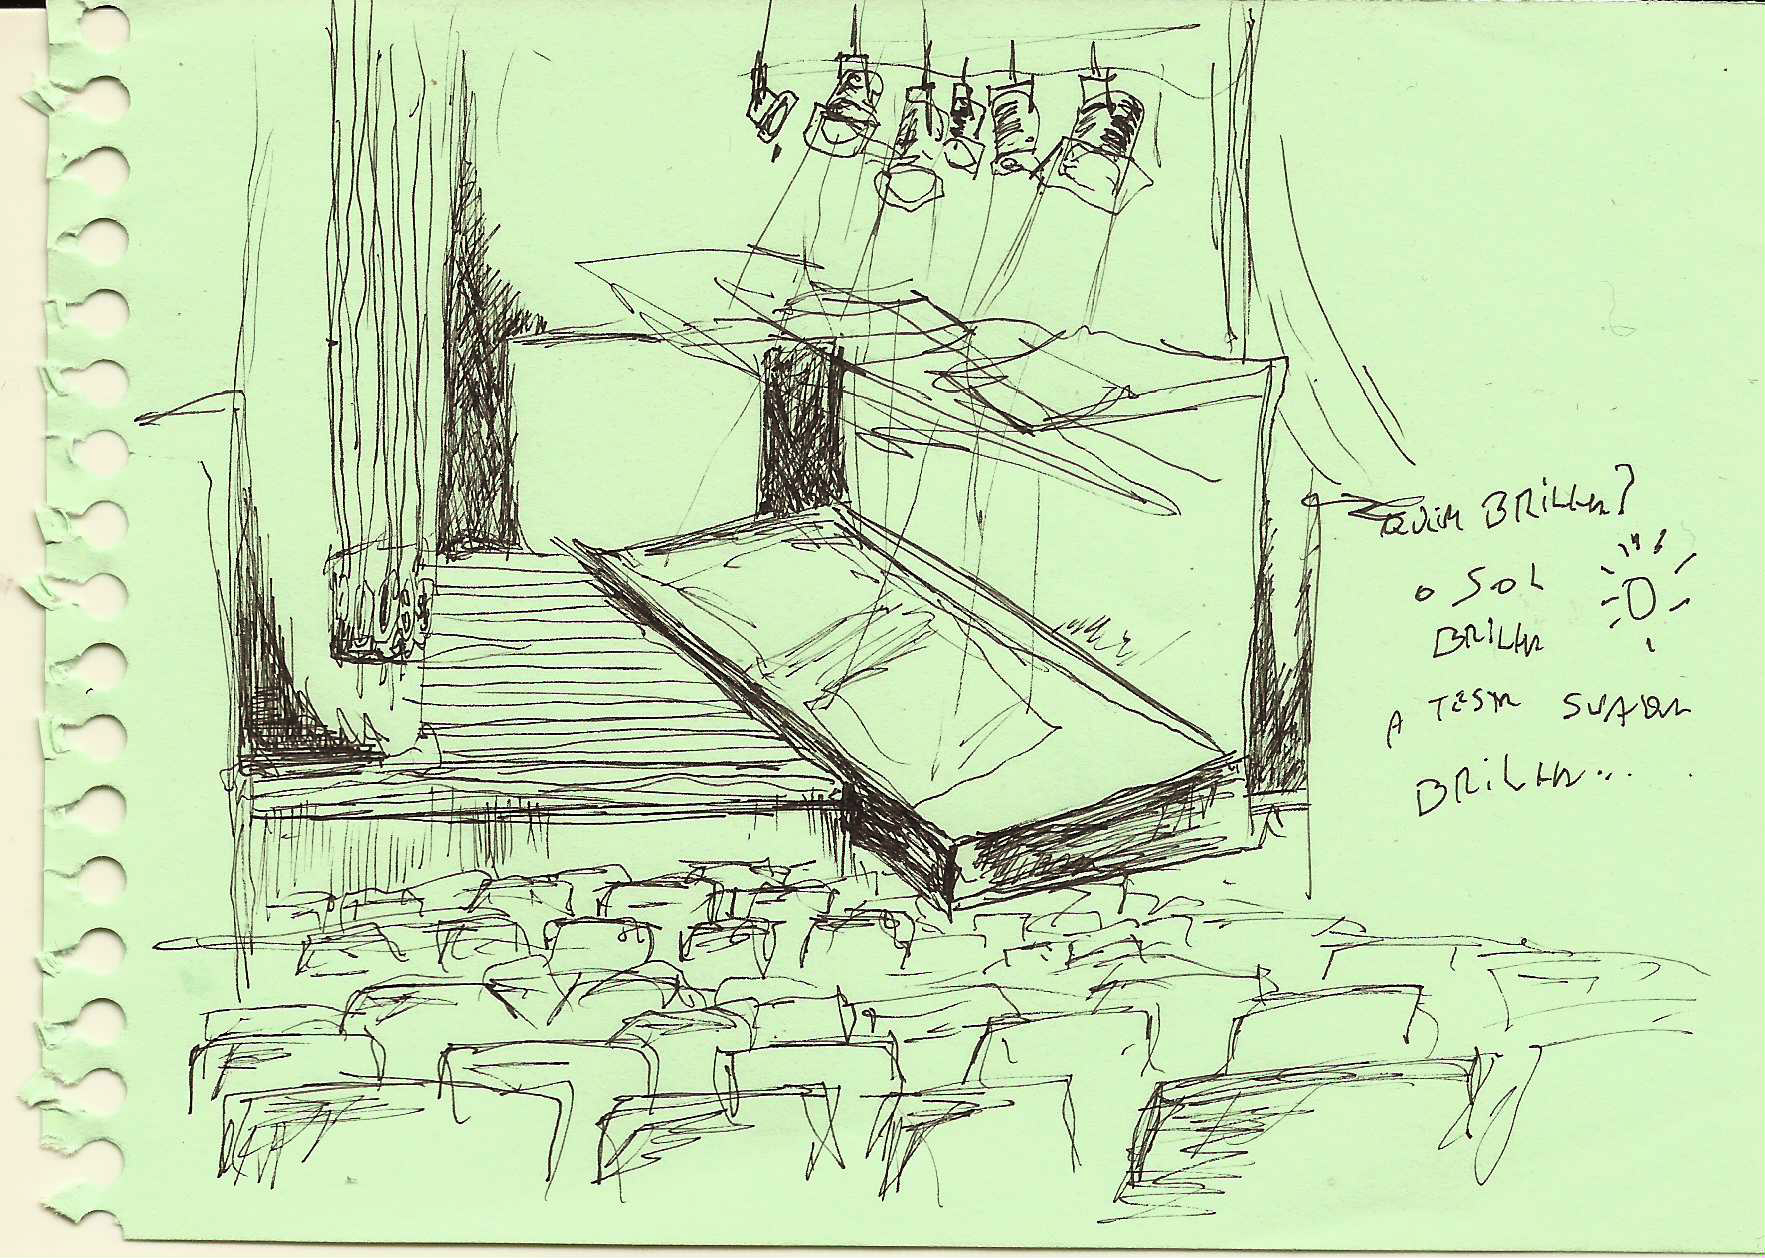 QUEM BRILHA?
O SOL
BRILHA
A TESTA SUADA
BRILHA...